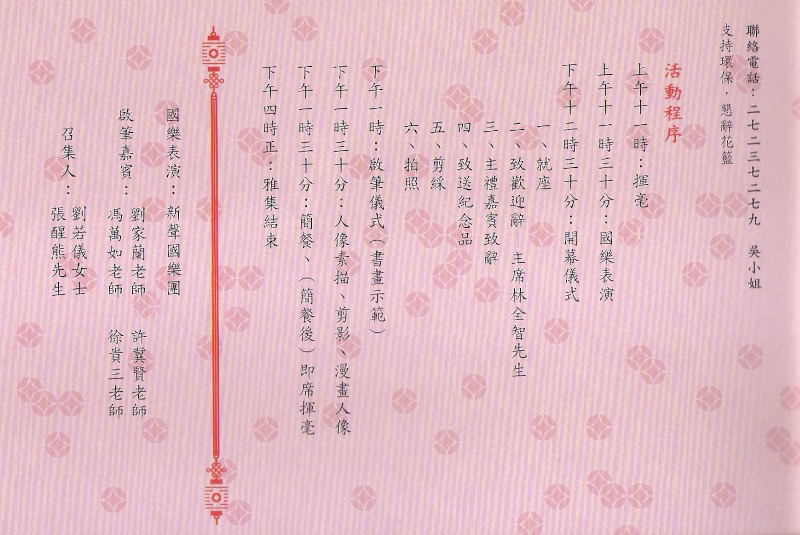 聯絡電話：二七二三七二七九　吳小姐
支持環保，懇辭花籃
活動程序
上午十一時：揮毫
上午十一時三十分：國樂表演
下午十二時三十分：開幕儀式
一、就座
二、致歡迎辭—主席林全智先生
三、主禮嘉賓致辭
四、致送紀念品
五、剪綵
六、拍照
下午一時：啟筆儀式（書畫示範）
下午一時三十分：人像素描、剪影、漫畫人像
下午一時三十分：簡餐、（簡餐後）即席揮毫
下午四時正：雅集結束
國樂表演：新聲國樂團
啟筆嘉賓：劉家蘭老師　許冀賢老師
馮萬如老師　徐貴三老師
召集人：劉若儀女士
張醒熊先生